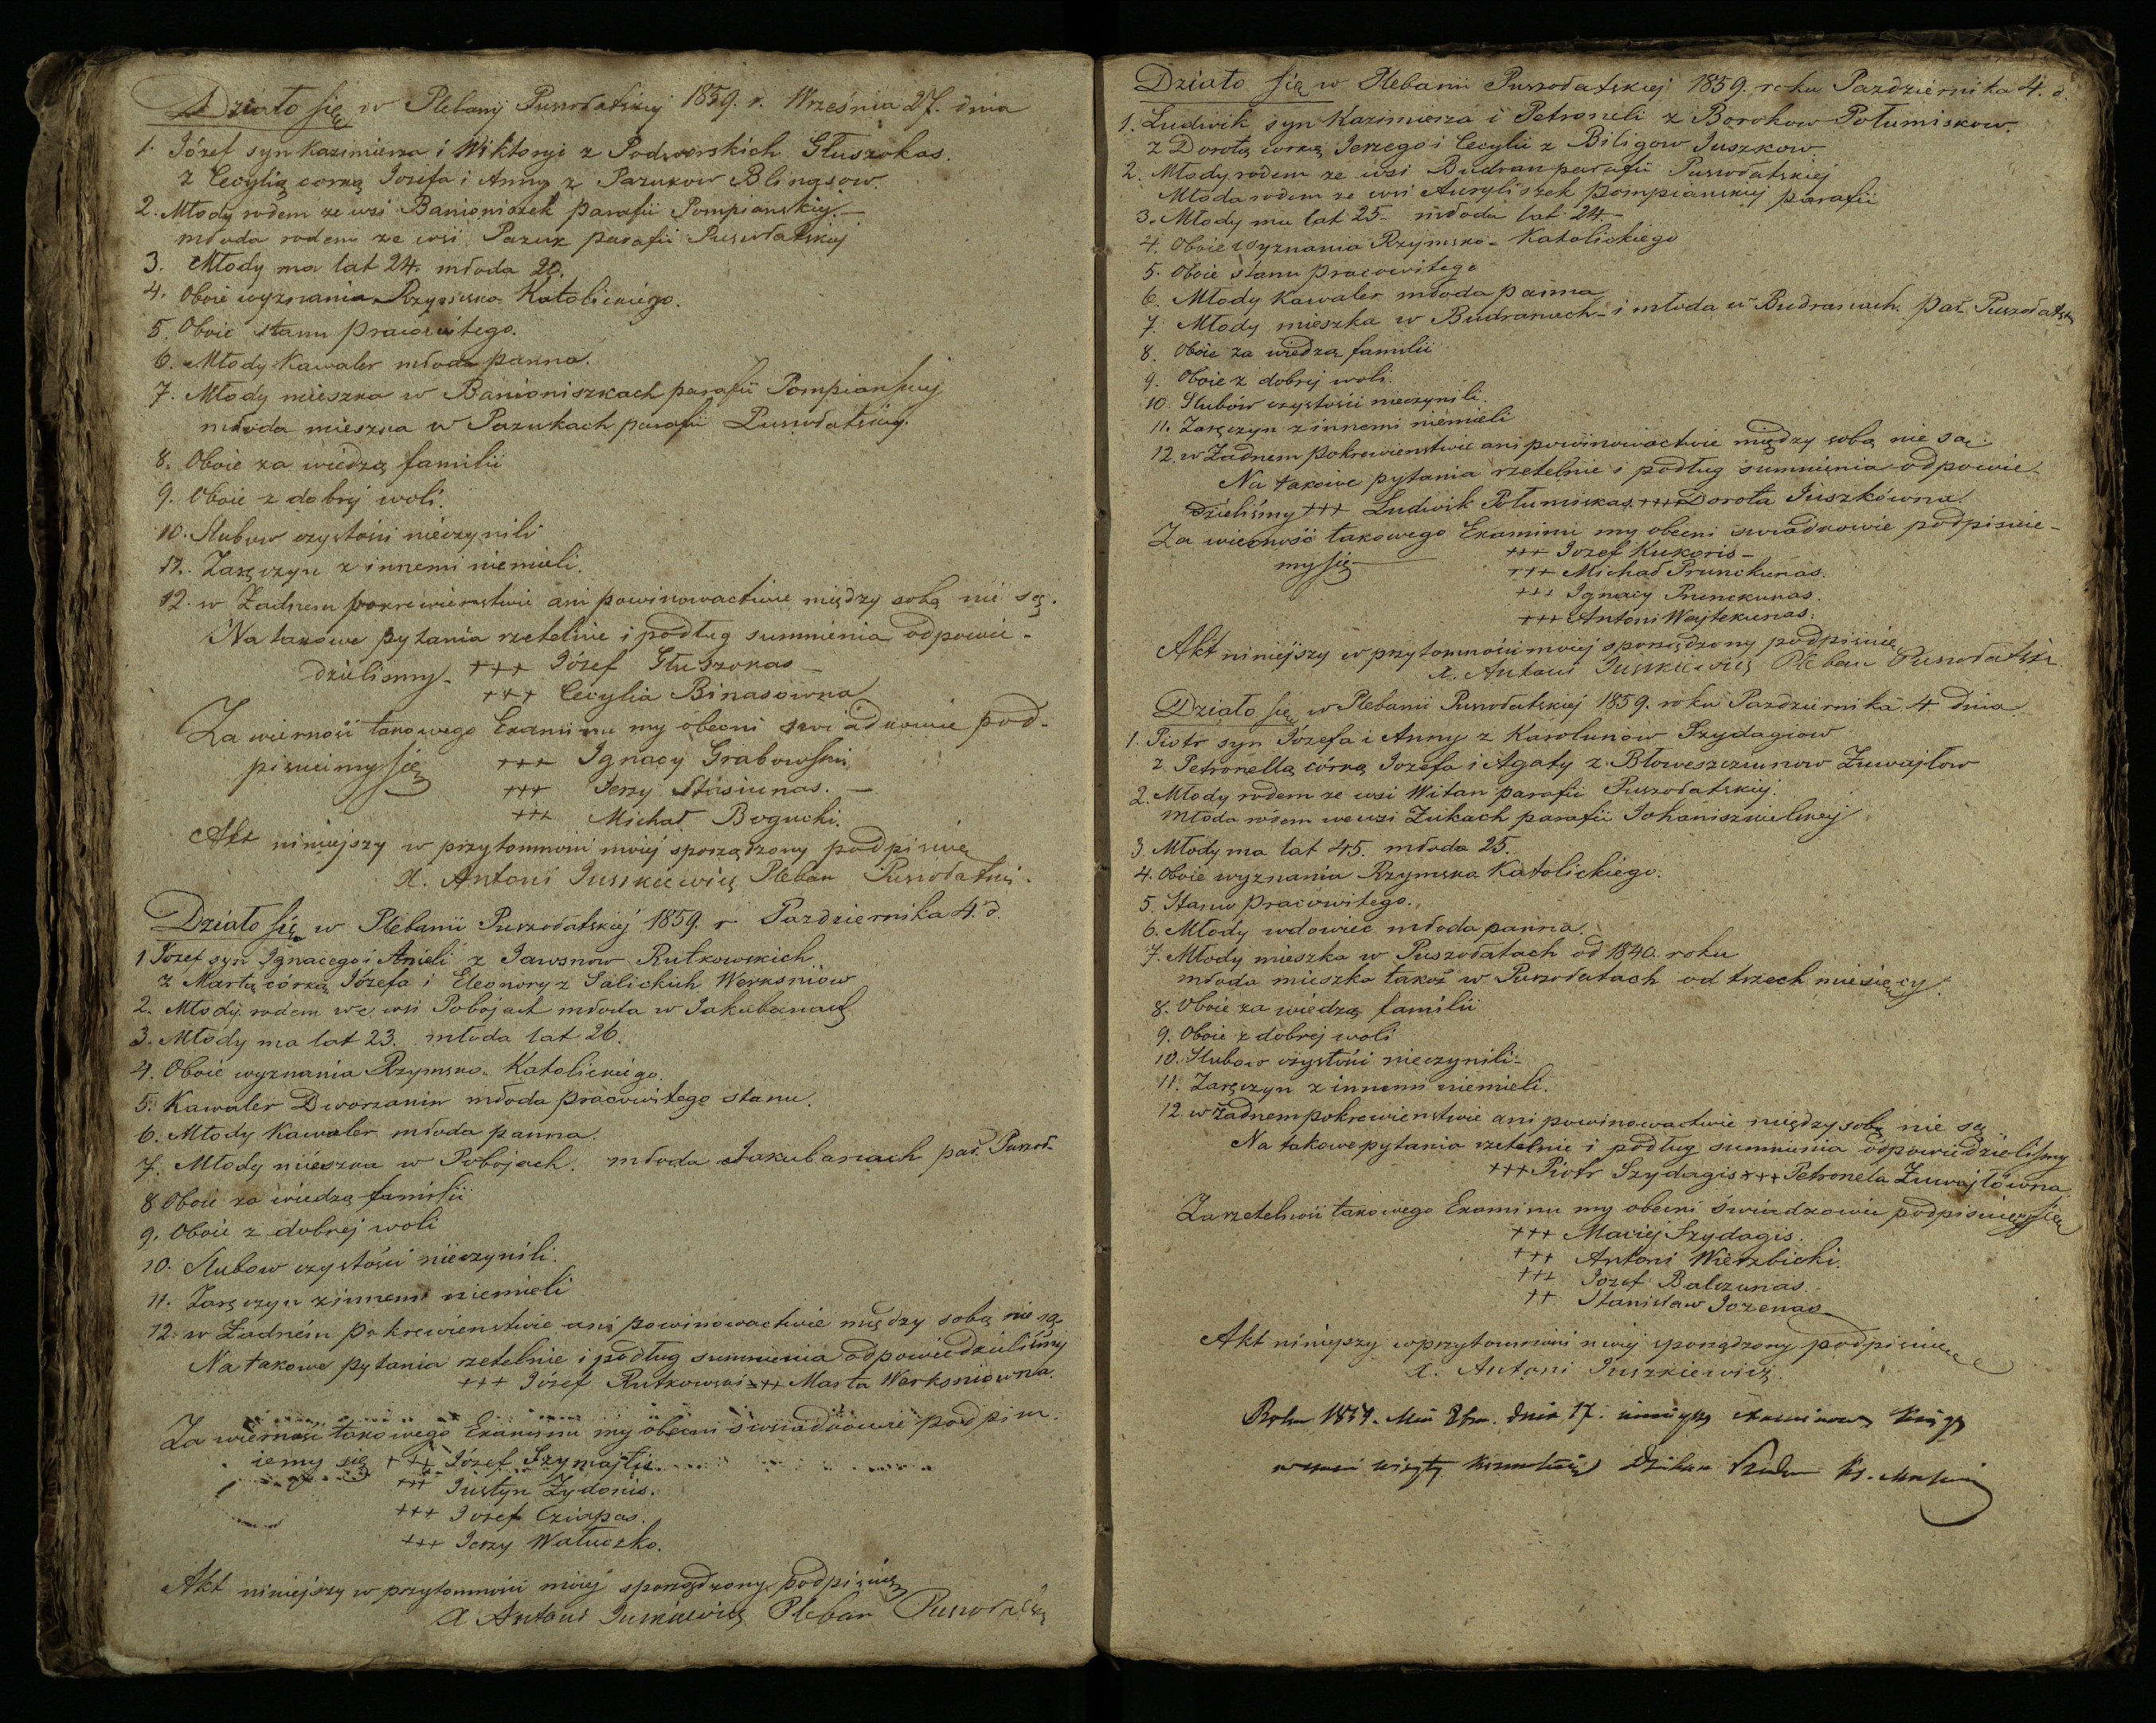 Działo się w Plebanij Puszołatskiej 1859. r. Września 27. dnia
1. Józef syn Kazimierza i Wiktoryi z Podworskich Głuszokas.
z Cecylią corką Jozefa i Anny z Pazukow Blinasow.
2. Młody rodem ze wsi Banioniszek parafii Pompianskiej.—
młoda rodem ze wsi Pazuk parafii Puszołatskiej
3. Młody ma lat 24. młoda 20.
4. Oboie wyznania Rzymsko-Katolickiego.
5. Oboie stanu pracowitego.
6. Młody Kawaler młoda panna.
7. Młody mieszka w Banioniszkach parafii Pompianskiej
młoda mieszka w Pazukach parafii Puszołatskiej.
8. Oboie za wiedzą familii
9. Oboie z dobrej woli.
10. Slubow czystości nieczynili
11. Zaręczyn z innemi niemieli.
12. w Żadnem pokrewienstwie ani powinowactwie między sobą nie są.
Na takowe pytania rzetelnie i podług sumnienia odpowie-
dzielismy. +++ Józef Głuszokas —
+++ Cecylia Binasowna
Za wierność takowego Examinu my obecni swiadkowie pod-
pisuiemy się +++ Ignacy Grabowski
+++ Jerzy Stasiunas. —
+++ Michał Bogucki.
Akt niniejszy w przytomnosci moiej sporządzony podpisuię
X. Antoni Juszkiewicz Pleban Puszołatski.
Działo się w Plebanii Puszołatskiej 1859. r Pazdziernika 4. d.
1 Józef syn Ignacego i Anieli z Jawsnow Rutkowskich
z Martą córką Józefa i Eleonory z Salickich Werksniow
2. Młody rodem we wsi Pobojach młoda w Jakubanach
3. Młody ma lat 23. młoda lat 26.
4. Oboie wyznania Rzymsko-Katolickiego.
5. Kawaler Dworzanin młoda pracowitego stanu.
6. Młody Kawaler młoda panna.
7. Młody mieszka w Pobojach. młoda Jakubanach par. Puszoł.
8 Oboie za wiedzą familii
9. Oboie z dobrej woli
10. Slubow czystości nieczynili.
11. Zaręczyn z innemi niemieli
12. w Żadném pokrewienstwie ani powinowactwie między sobą nie są
Na takowe pytania rzetelnie i podług sumnienia odpowiedzieliśmy
+++ Józef Rutkowski +++ Marta Werksniowna.
Za wiernosc takowego Examinu my obecni swiadkowie podpisu-
iemy się +++ Józef Szymajtis
+++ Justyn Żydonis.
+++ Josef Cziapas.
+++ Jerzy Watuszko.
Akt niniejszy w przytomności moiej sporządzony podpisuię
X Antoni Juszkiewicz Pleban Puszołatski
Działo się w Plebanii Puszołatskiej 1859. roku Pazdziernika 4. d.
1. Ludwik syn Kazimierza i Petroneli z Borokow Połumiskow.
z Dorotą corką Jerzego i Cecylii z Biligow Juszkow
2. Młody rodem ze wsi Budran parafii Puszołatskiej
Młoda rodem ze wsi Auryliszek pompianskiej parafii
3. Młody ma lat 25. młoda lat 24.—
4. Oboie wyznania Rzymsko-Katolickiego
5. Oboie stanu pracowitego
6. Młody Kawaler młoda panna
7. Młody mieszka w Budranach- i młoda w Budranach. par. Puszołatsk.
8. Oboie za wiedzą familii
9. Oboie z dobrej woli.
10. Slubów czystości nieczynili.
11. Zaręczyn z innemi niemieli
12. w Żadnem pokrewienstwie ani powinowactwie między sobą nie są.
Na takowe pytania rzetelnie i podług sumnienia odpowie-
dzieliśmy +++ Ludwik Połumiskas +++ Dorota Juszkówna
Za wierność takowego Examinu my obecni swiadkowie podpisuie-
my się — +++ Jozef Kukoris —
+++ Michał Prunckunas.
+++ Ignacy Prunckunas.
+++ Antoni Wajtekunas.
Akt niniejszy w przytomności moiej sporządzony podpisuię
X. Antoni Juszkiewicz Pleban Puszołatski.
Działo się w Plebanii Puszołatskiej 1859. roku Pazdziernika 4. dnia
1. Piotr syn Józefa i Anny z Karolunow Szydagiow
z Petronellą córką Jozefa i Agaty z Błoweszczunow Żuwajtow
2. Młody rodem ze wsi Witan parafii Puszołatskiej.
Młoda rodem we wsi Żukach parafii Johaniszkielskiej
3. Młody ma lat 45. młoda 25.
4. Oboie wyznania Rzymsko Katolickiego.
5. Stanu pracowitego.
6. Młody wdowiec młoda panna.
7. Młody mieszka w Puszołatach od 1840. roku
młoda mieszka takoż w Puszołatach od trzech miesięcy.
8. Oboie za wiedzą familii
9. Oboie z dobrej woli
10. Slubow czystości nieczynili-
11. Zaręczyn z innemi niemieli.
12. w Żadnem pokrewienstwie ani powinowactwie między sobą nie są
Na takowe pytania rzetelnie i podług sumnienia odpowiedzielismy
+++ Piotr Szydagis +++ Petronela Żuwajtówna
Za rzetelność takowego Examinu my obecni świadkowie podpisuiemy się
+++ Maciej Szydagis.
+++ Antoni Wierzbicki.
+++ Jozef Balczunas.
++ Stanisław Jozenas
Akt niniejszy w przytomności moiej sporządzony podpisuię
X. Antoni Juszkiewicz.
Roku 1859. dnia 17.